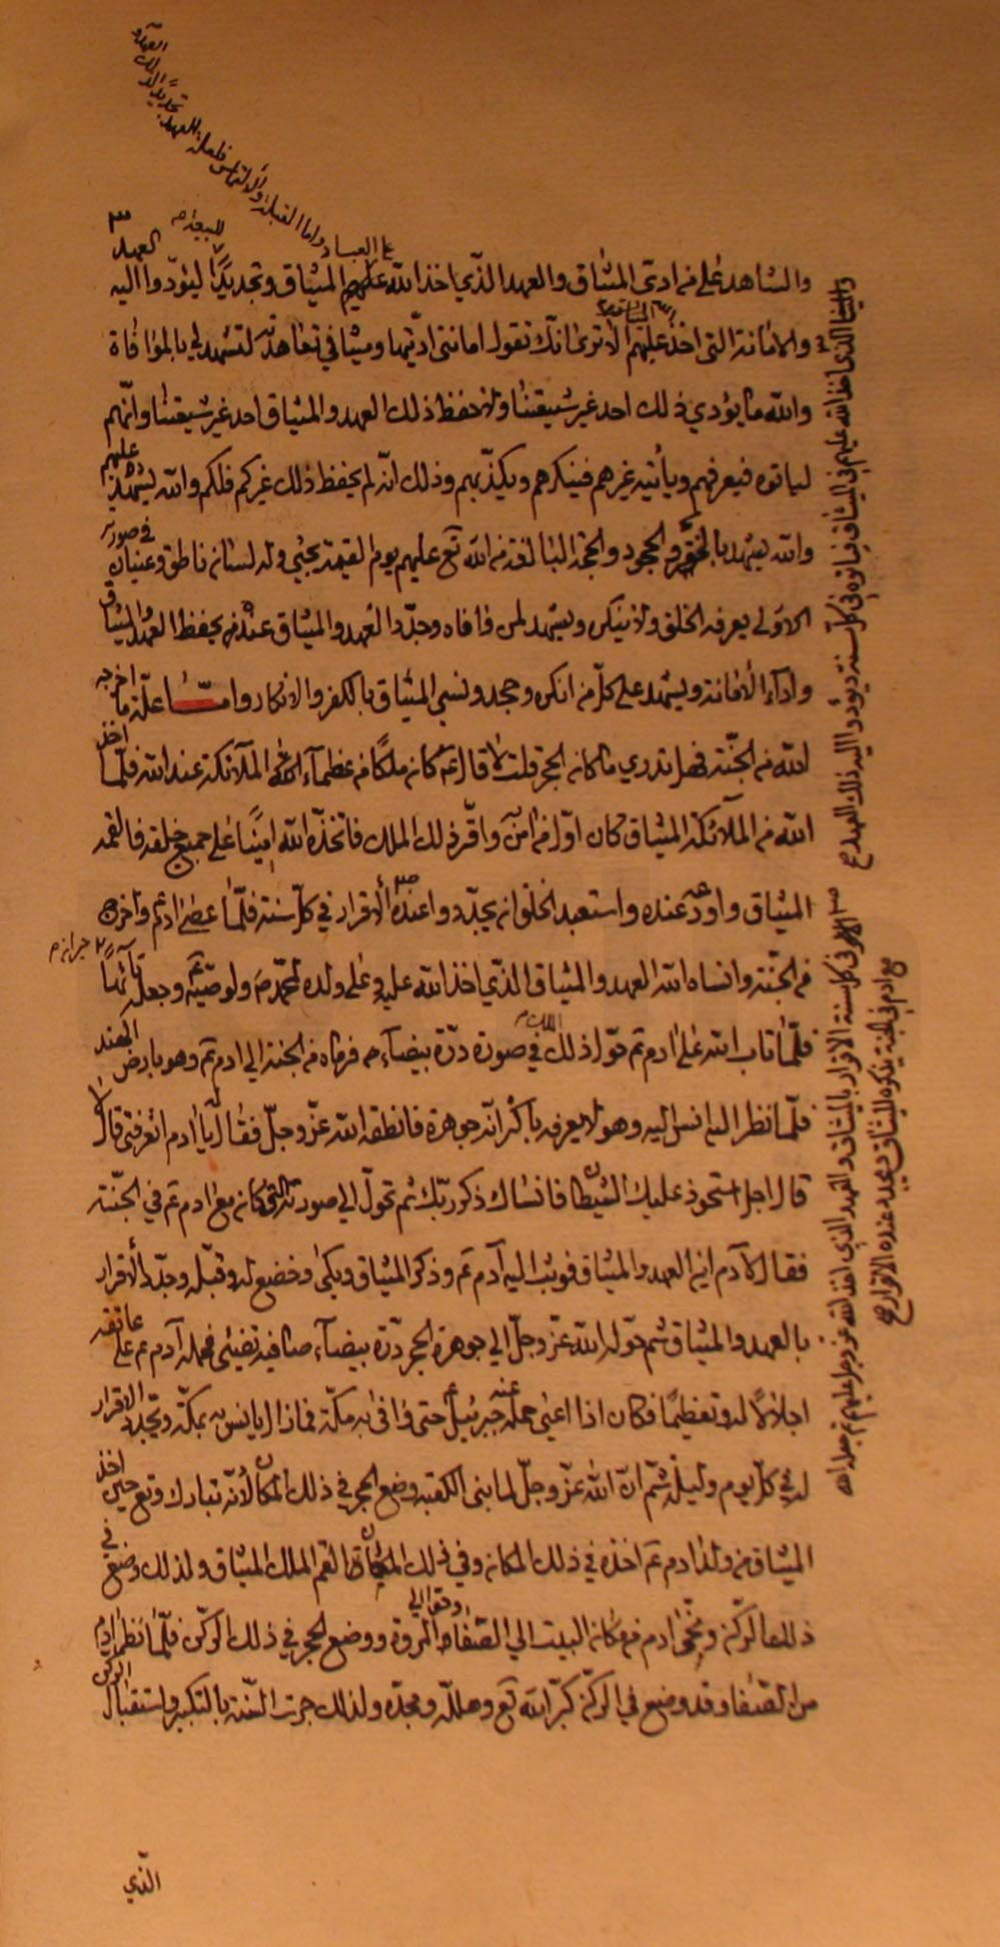 على العباد واما القبلة والالتماس فلعلة العهد تجديدا لذلك العهد و
للبيعة م
والشاهد على من ادى الميثاق والعهد الذي اخذ الله عليهم الميثاق وتجديدا ليؤدوا اليه العهد
والامانة التي اخذ عليهم الا ترى انك تقول امانتي اديتها وميثاقي تعاهدته لتشهد لي بالموافاة
والله ما يؤدي ذلك احد غير شيعتنا ولا حفظ ذلك العهد والميثاق احد غير شيعتنا وانهم
لياتوه فيعرفهم ويأتيه غيرهم فينكرهم ويكذبهم وذلك انه لم يحفظ ذلك غيركم فلكم والله يشهد عليهم
والله يشهد بالخفر والجحود والحجة البالغة من الله تع عليهم يوم القيمة يجيئ وله لسان ناطق وعينان في صورته
الاولى يعرفه الخلق ولا ينكره ويشهد لمن وافاه وجدد العهد والميثاق عنده بحفظ العهد والميثاق
واداء الامانة ويشهد على كل من انكر وجحد ونسي الميثاق بالكفر والانكار واما علة ما اخرجه
الله من الجنة فهل تدري ما كان الحجر قلت لا قال عم كان ملكا من عظماء الملائكة عند الله فلما اخذ
الله من الملائكة الميثاق كان اول من امن به واقر ذلك الملك فاتخذه الله امينا على جميع خلقه فالقمه
الميثاق واودعه عنده واستعبد الخلق ان يجددوا عنده الاقرار في كل سنة فلما عصى ادم عم واخرج
من الجنة وانساه الله العهد والميثاق الذي اخذ الله عليه وعلى ولده لمحمد ص ولوصيه عم وجعله تائها
حيرانا م
فلما تاب الله على ادم عم حول ذلك الملك في صورة درة بيضاء فرماه من الجنة الى ادم عم وهو بارض الهند
فلما نظر اليه انس اليه وهو لا يعرفه باكثر انه جوهرة فانطقه الله عز وجل فقال له يا ادم اتعرفني قال لا
قال اجل استحوذ عليك الشيطان فانساك ذكر ربك ثم تحول الى صورته التي كان مع ادم عم في الجنة
فقال لآدم اين العهد والميثاق فوثب اليه آدم عم وذكر الميثاق وبكى وخضع له وقبله وجدد الاقرار
بالعهد والميثاق ثم حوله الله عز وجل الى جوهرة الحجر درة بيضاء صافية تضيئ فحمله آدم عم على عاتقه
اجلالا له وتعظيما فكان اذا اعيى حمله عنه جبرئيل ع حتى وافى به مكة فما زال يانس به بمكة ويجدد الاقرار
له في كل يوم وليلة ثم ان الله عز وجل لما بنى الكعبة وضع الحجر في ذلك المكان لانه تبارك وتع حين اخذ
الميثاق من ولد ادم عم اخذه في ذلك المكان وفي ذلك المكان القم الملك الميثاق ولذلك وضع في
ذلك الركن ونحى ادم من مكان البيت الى الصفا وحوا الى المروة ووضع الحجر في ذلك الركن فلما نظر ادم
من الصفا وقد وضع في الركن كبر الله تع وهلله ومجده ولذلك جرت السنة بالتكبير واستقبال الركن
الذي
والميثاق الذي اخذ الله عليهم في الميثاق فياتوه في كل سنة ويؤدوا اليه ذلك العهد م
الاقرار في كل سنة الاقرار بالميثاق والعهد الذي اخذ الله عز وجل عليهم ثم جعله الله
مع ادم في الجنة يذكره الميثاق ويجدد عنده الاقرار